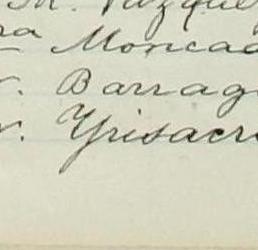 M. Vazque
ra Moncad
r. Barrag
r. Yrisacr